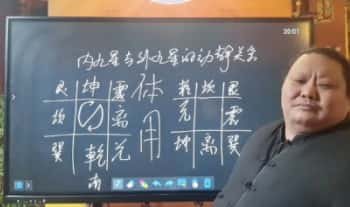 20:01
内九星与外九星的动静关系
艮 坤 震 体 乾 坎 艮
坎 离 兑 震
巽 乾 兑 用 坤 离 巽
南